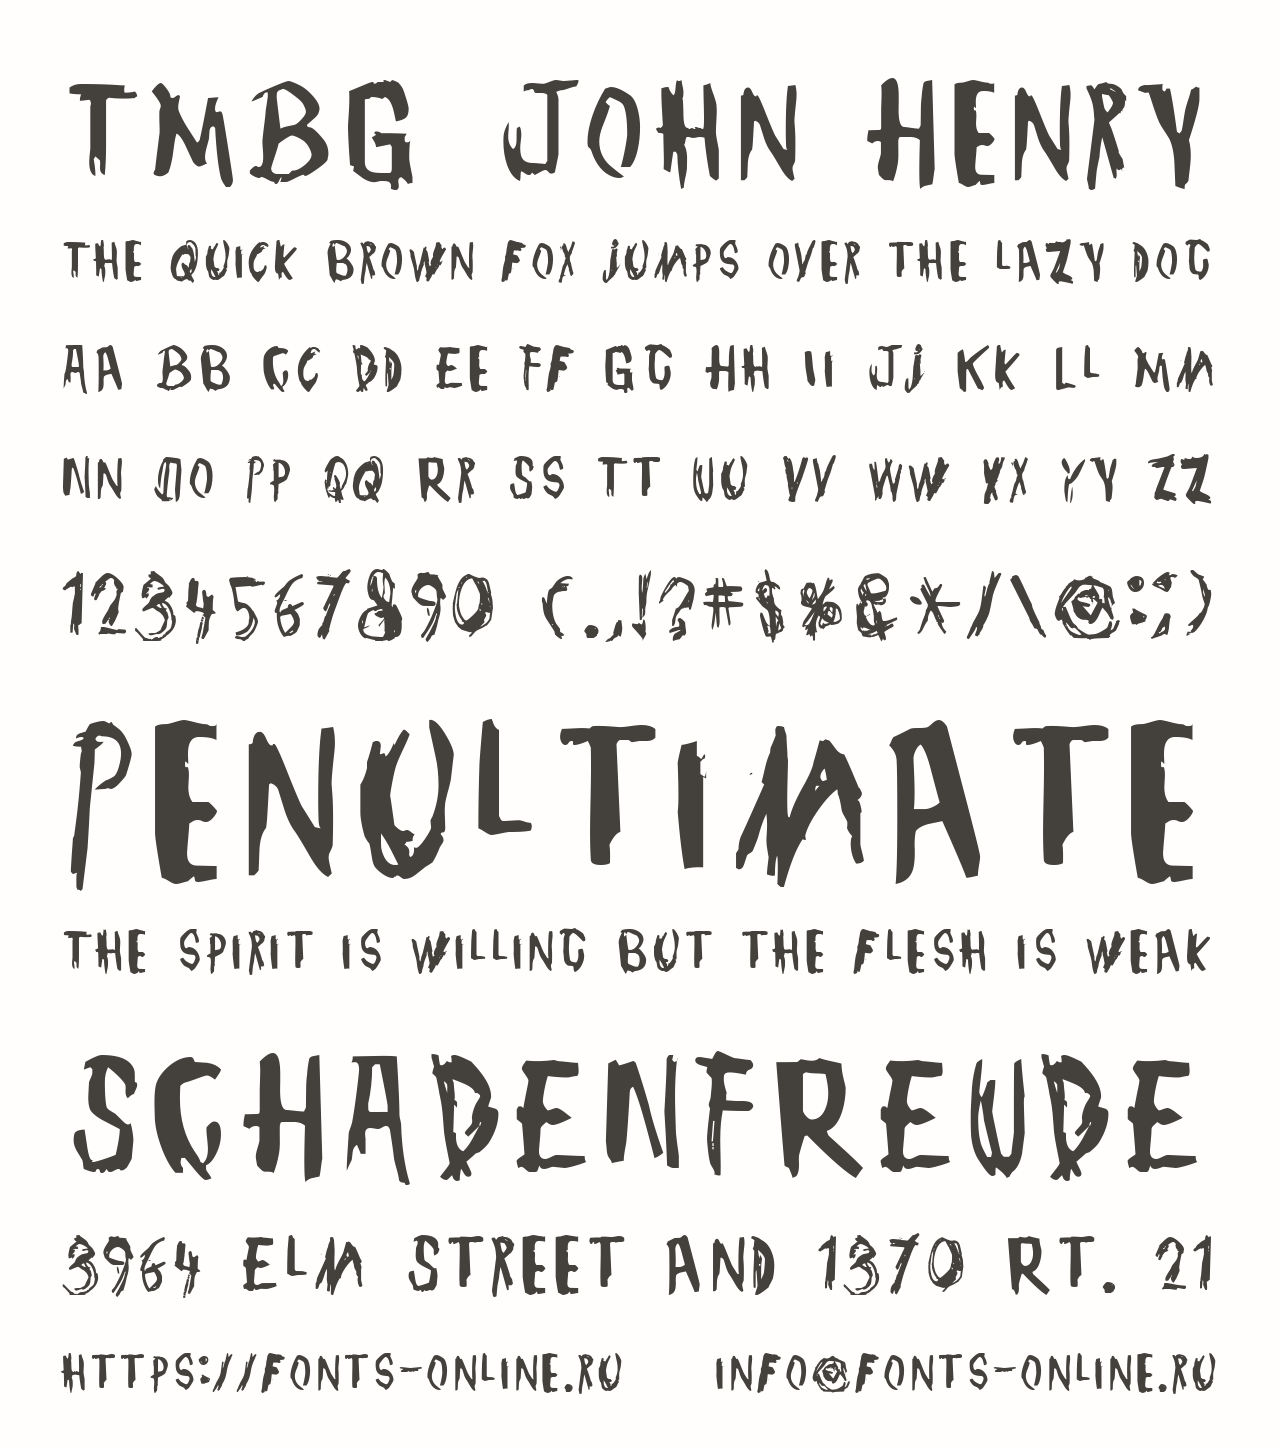 TMBG JOHN HENRY
THE QUICK BROWN FOX JUMPS OVER THE LAZY DOG
AA BB CC DD EE FF GG HH II JJ KK LL MM
NN OO PP QQ RR SS TT UU VV WW XX YY ZZ
1234567890 (.,!?#$%&*/\@:;)
PENULTIMATE
THE SPIRIT IS WILLING BUT THE FLESH IS WEAK
SCHADENFREUDE
3964 ELM STREET AND 1370 RT. 21
HTTPS://FONTS-ONLINE.RU INFO@FONTS-ONLINE.RU